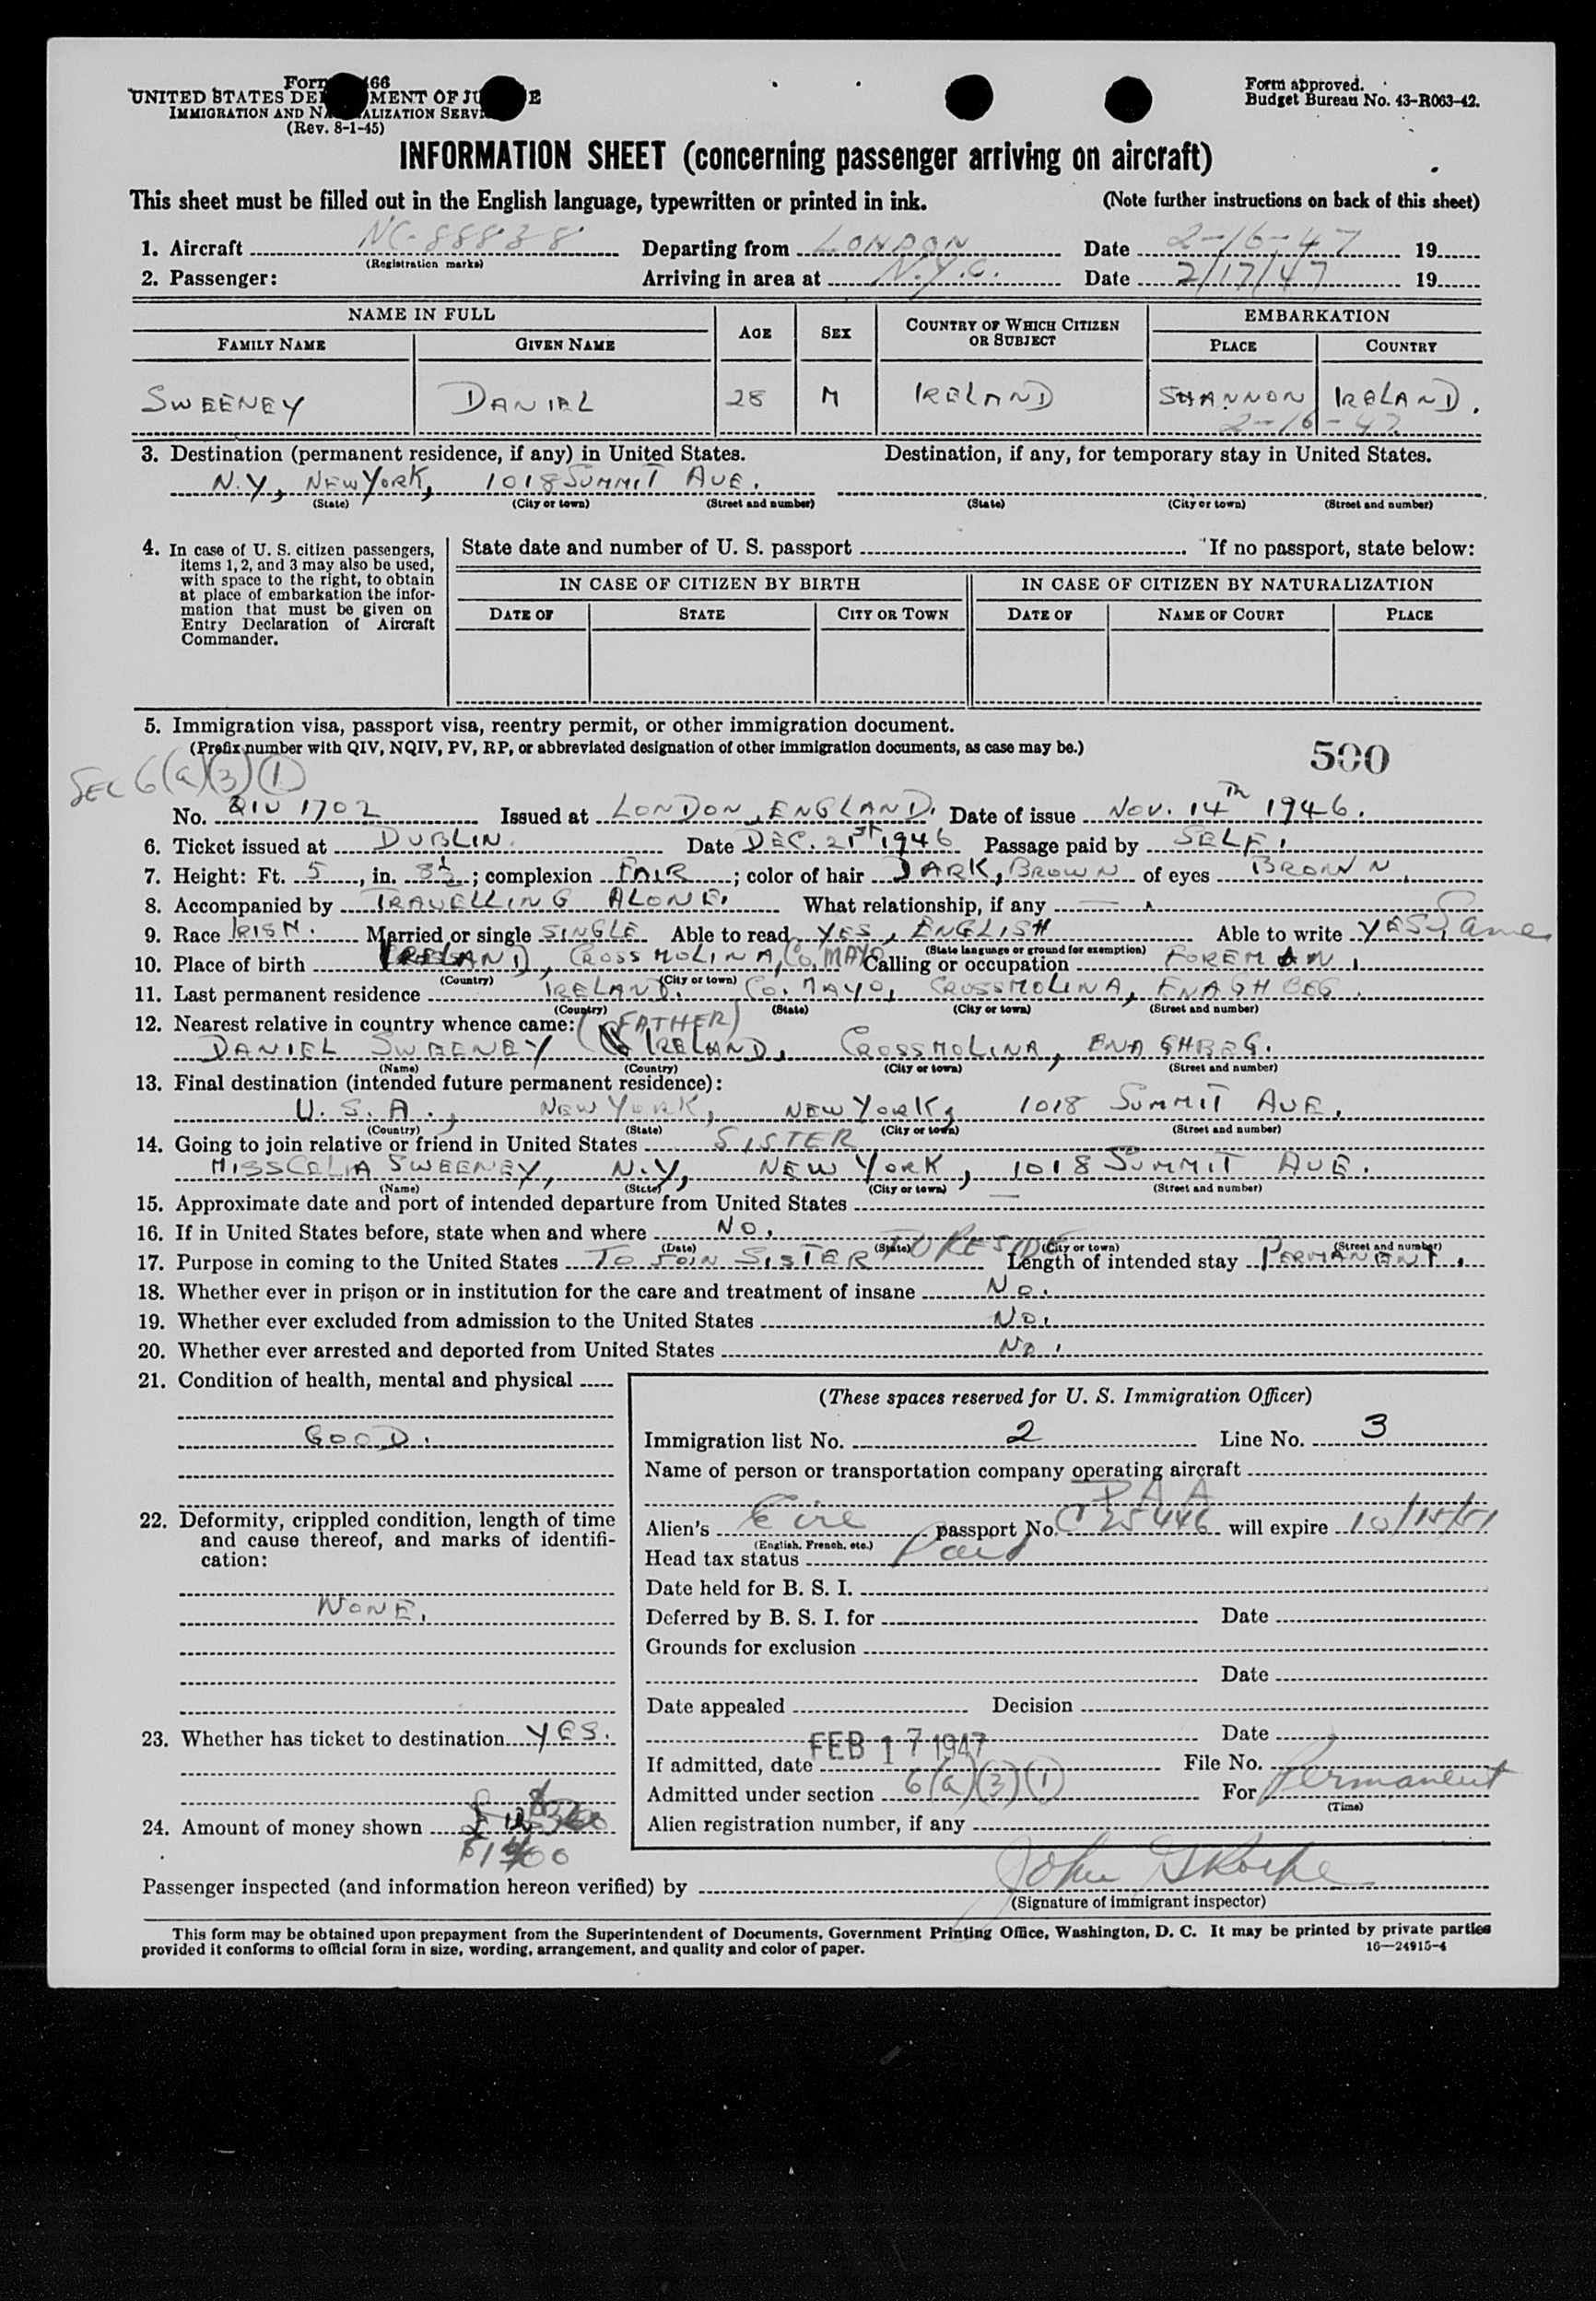 Form 66
UNITED STATES DE MENT OF JU E
IMMIGRATION AND NA ALIZATION SERVI
(Rev. 8-1-45)
Form approved.
Budget Bureau No. 43-R063-42.
INFORMATION SHEET (concerning passenger arriving on aircraft)
This sheet must be filled out in the English language, typewritten or printed in ink. (Note further instructions on back of this sheet)
1. Aircraft NC-88838 Departing from LONDON Date 2-16-47 19
(Registration marks)
2. Passenger: Arriving in area at N.Y.C. Date 2/17/47 19
NAME IN FULL AGE SEX COUNTRY OF WHICH CITIZEN OR SUBJECT EMBARKATION
FAMILY NAME GIVEN NAME PLACE COUNTRY
SWEENEY DANIEL 28 M IRELAND SHANNON IRELAND.
2-16-47
3. Destination (permanent residence, if any) in United States. Destination, if any, for temporary stay in United States.
N.Y., NEW YORK, 1018 SUMMIT AVE.
(State) (City or town) (Street and number) (State) (City or town) (Street and number)
4. In case of U. S. citizen passengers, items 1, 2, and 3 may also be used, with space to the right, to obtain at place of embarkation the information that must be given on Entry Declaration of Aircraft Commander.
State date and number of U. S. passport If no passport, state below:
IN CASE OF CITIZEN BY BIRTH IN CASE OF CITIZEN BY NATURALIZATION
DATE OF STATE CITY OR TOWN DATE OF NAME OF COURT PLACE
5. Immigration visa, passport visa, reentry permit, or other immigration document.
(Prefix number with QIV, NQIV, PV, RP, or abbreviated designation of other immigration documents, as case may be.)
500
SEC 6(a)(3)(1)
No. QIV 1702 Issued at LONDON, ENGLAND. Date of issue NOV. 14TH 1946.
6. Ticket issued at DUBLIN. Date DEC. 21ST 1946 Passage paid by SELF.
7. Height: Ft. 5, in. 8½; complexion FAIR; color of hair DARK, BROWN of eyes BROWN
8. Accompanied by TRAVELLING ALONE. What relationship, if any —
9. Race IRISH. Married or single SINGLE Able to read YES, ENGLISH Able to write YES, Same
(State language or ground for exemption)
10. Place of birth IRELAND, CROSSMOLINA, CO. MAYO Calling or occupation FOREMAN.
(Country) (City or town)
11. Last permanent residence IRELAND. CO. MAYO, CROSSMOLINA, ENAGHBEG.
(Country) (State) (City or town) (Street and number)
12. Nearest relative in country whence came: (FATHER)
DANIEL SWEENEY IRELAND, CROSSMOLINA, ENAGHBEG.
(Name) (Country) (City or town) (Street and number)
13. Final destination (intended future permanent residence):
U.S.A., NEW YORK, NEW YORK, 1018 SUMMIT AVE.
(Country) (State) (City or town) (Street and number)
14. Going to join relative or friend in United States SISTER
MISS CELIA SWEENEY, N.Y., NEW YORK, 1018 SUMMIT AVE.
(Name) (State) (City or town) (Street and number)
15. Approximate date and port of intended departure from United States —
16. If in United States before, state when and where NO.
(Date) (State) (City or town) (Street and number)
17. Purpose in coming to the United States TO JOIN SISTER TO RESIDE Length of intended stay PERMANENT.
18. Whether ever in prison or in institution for the care and treatment of insane NO.
19. Whether ever excluded from admission to the United States NO.
20. Whether ever arrested and deported from United States NO.
21. Condition of health, mental and physical
GOOD.
22. Deformity, crippled condition, length of time and cause thereof, and marks of identification:
NONE.
23. Whether has ticket to destination YES.
24. Amount of money shown
(These spaces reserved for U. S. Immigration Officer)
Immigration list No. 2 Line No. 3
Name of person or transportation company operating aircraft
PAA
Alien's Eire passport No. C 25446 will expire 10/15/51
(English, French, etc.)
Head tax status Paid
Date held for B. S. I.
Deferred by B. S. I. for Date
Grounds for exclusion
Date
Date appealed Decision
Date
If admitted, date FEB 17 1947 File No.
Admitted under section 6(a)(3)(1) For Permanent
(Time)
Alien registration number, if any
Passenger inspected (and information hereon verified) by John
(Signature of immigrant inspector)
This form may be obtained upon prepayment from the Superintendent of Documents, Government Printing Office, Washington, D. C. It may be printed by private parties
provided it conforms to official form in size, wording, arrangement, and quality and color of paper. 16—24915-4